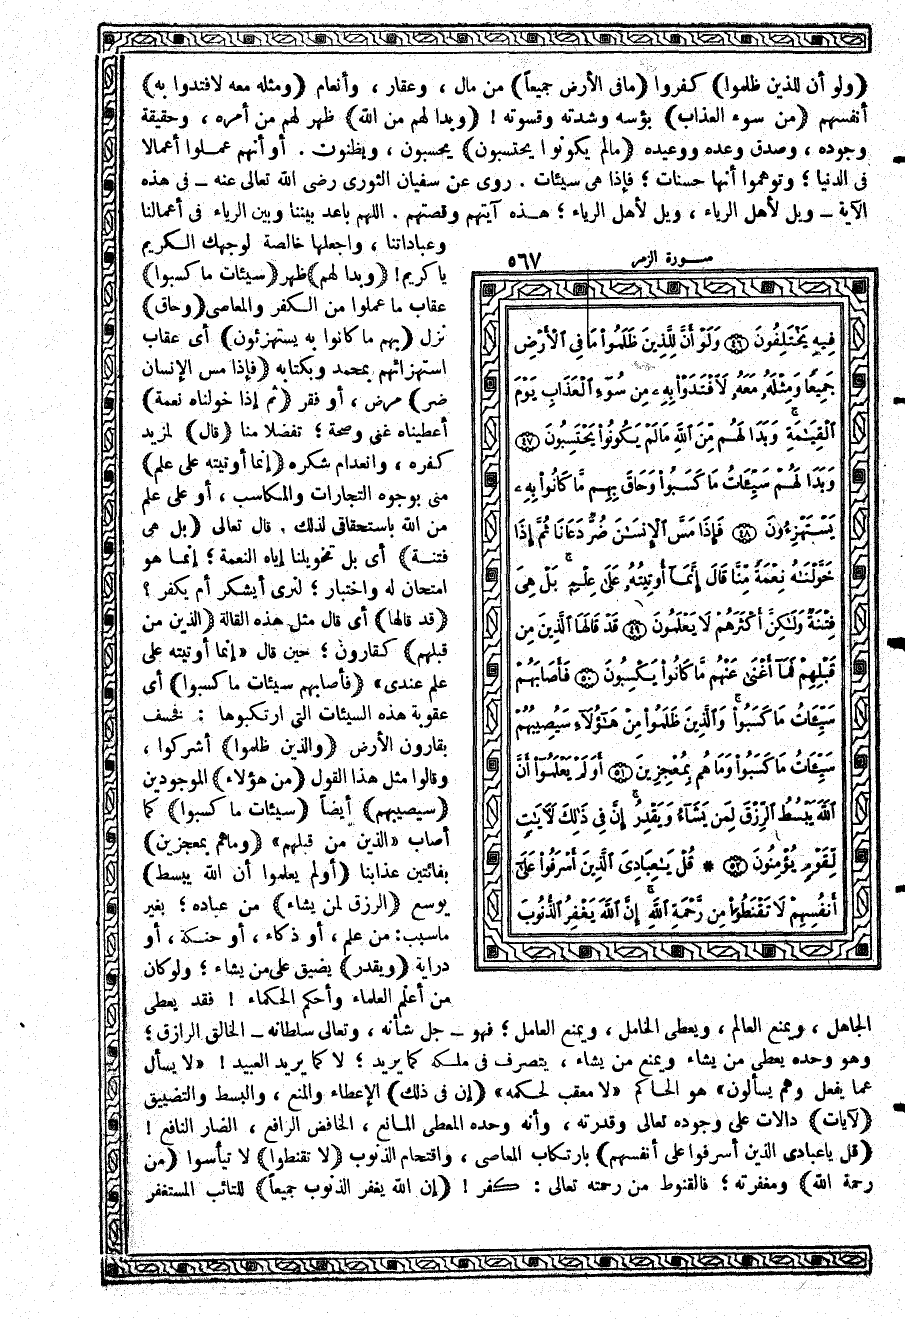 (ولو أن للذين ظلموا) كفروا (مافى الأرض جميعاً) من مال ، وعقار ، وأنعام (ومثله معه لافتدوا به)
أنفسهم (من سوء العذاب) بؤسه وشدته وقسوته ! (وبدا لهم من الله) ظهر لهم من أمره ، وحقيقة
وجوده ، وصدق وعده ووعيده (مالم يكونوا يحتسبون) يحسبون ، ويظنون . أو أنهم عملوا أعمالا
فى الدنيا ؛ وتوهموا أنها حسنات ؛ فإذا هى سيئات . روى عن سفيان الثورى رضى الله تعالى عنه ــ فى هذه
الآية ــ ويل لأهل الرياء ، ويل لأهل الرياء ؛ هذه آيتهم وقصتهم . اللهم باعد بيننا وبين الرياء فى أعمالنا
وعباداتنا ، واجعلها خالصة لوجهك الكريم
ياكريم! (وبدا لهم)ظهر(سيئات ماكسبوا)
عقاب ما عملوا من الكفر والمعاصى(وحاق)
نزل (بهم ماكانوا به يستهزئون) أى عقاب
استهزائهم بمحمد وبكتابه (فإذا مس الإنسان
ضر) مرض ، أو فقر (ثم إذا خولناه نعمة)
أعطيناه غنى وصحة ؛ تفضلا منا (قال) لمزيد
كفره ، وانعدام شكره (إنما أوتيته على علم)
منى بوجوه التجارات والمكاسب ، أو على علم
من الله باستحقاقى لذلك . قال تعالى (بل هى
فتنة) أى بل تخويلنا إياه النعمة ؛ إنما هو
امتحان له واختبار ؛ لنرى أيشكر أم يكفر ؟
(قد قالها) أى قال مثل هذه القالة (الذين من
قبلهم) كقارون ؛ حين قال «إنما أوتيته على
علم عندى» (فأصابهم سيئات ماكسبوا) أى
عقوبة هذه السيئات التى ارتكبوها : فخسف
بقارون الأرض (والذين ظلموا) أشركوا ،
وقالوا مثل هذا القول (من هؤلاء) الموجودين
(سيصيبهم) أيضاً (سيئات ماكسبوا) كما
أصاب «الذين من قبلهم» (وماهم بمعجزين)
بفائتين عذابنا (أولم يعلموا أن الله يبسط)
يوسع (الرزق لمن يشاء) من عباده ؛ بغير
ماسبب: من علم ، أو ذكاء ، أو حنكة ، أو
دراية (ويقدر) يضيق على من يشاء ؛ ولوكان
من أعلم العلماء وأحكم الحكماء ! فقد يعطى
سورة الزمر ٥٦٧
فِيهِ يَخْتَلِفُونَ ٤٦ وَلَوْ أَنَّ لِلَّذِينَ ظَلَمُوا۟ مَا فِى ٱلْأَرْضِ
جَمِيعًا وَمِثْلَهُۥ مَعَهُۥ لَٱفْتَدَوْا۟ بِهِۦ مِن سُوٓءِ ٱلْعَذَابِ يَوْمَ
ٱلْقِيَٰمَةِ ۚ وَبَدَا لَهُم مِّنَ ٱللَّهِ مَا لَمْ يَكُونُوا۟ يَحْتَسِبُونَ ٤٧
وَبَدَا لَهُمْ سَيِّـَٔاتُ مَا كَسَبُوا۟ وَحَاقَ بِهِم مَّا كَانُوا۟ بِهِۦ
يَسْتَهْزِءُونَ ٤٨ فَإِذَا مَسَّ ٱلْإِنسَٰنَ ضُرٌّ دَعَانَا ثُمَّ إِذَا
خَوَّلْنَٰهُ نِعْمَةً مِّنَّا قَالَ إِنَّمَآ أُوتِيتُهُۥ عَلَىٰ عِلْمٍۭ ۚ بَلْ هِىَ
فِتْنَةٌ وَلَٰكِنَّ أَكْثَرَهُمْ لَا يَعْلَمُونَ ٤٩ قَدْ قَالَهَا ٱلَّذِينَ مِن
قَبْلِهِمْ فَمَآ أَغْنَىٰ عَنْهُم مَّا كَانُوا۟ يَكْسِبُونَ ٥٠ فَأَصَابَهُمْ
سَيِّـَٔاتُ مَا كَسَبُوا۟ ۚ وَٱلَّذِينَ ظَلَمُوا۟ مِنْ هَٰٓؤُلَآءِ سَيُصِيبُهُمْ
سَيِّـَٔاتُ مَا كَسَبُوا۟ وَمَا هُم بِمُعْجِزِينَ ٥١ أَوَلَمْ يَعْلَمُوٓا۟ أَنَّ
ٱللَّهَ يَبْسُطُ ٱلرِّزْقَ لِمَن يَشَآءُ وَيَقْدِرُ ۚ إِنَّ فِى ذَٰلِكَ لَـَٔايَٰتٍ
لِّقَوْمٍ يُؤْمِنُونَ ٥٢ * قُلْ يَٰعِبَادِىَ ٱلَّذِينَ أَسْرَفُوا۟ عَلَىٰٓ
أَنفُسِهِمْ لَا تَقْنَطُوا۟ مِن رَّحْمَةِ ٱللَّهِ ۚ إِنَّ ٱللَّهَ يَغْفِرُ ٱلذُّنُوبَ
الجاهل ، ويمنع العالم ، ويعطى الخامل ، ويمنع العامل ؛ فهو ــ جل شأنه ، وتعالى سلطانه ــ الخالق الرازق ؛
وهو وحده يعطى من يشاء ويمنع من يشاء ، يتصرف فى ملكه كما يريد ؛ لا كما يريد العبيد ! «لا يسأل
عما يفعل وهم يسألون» هو الحاكم «لا معقب لحكمه» (إن فى ذلك) الإعطاء والمنع ، والبسط والتضييق
(لآيات) دالات على وجوده تعالى وقدرته ، وأنه وحده المعطى المانع ، الخافض الرافع ، الضار النافع !
(قل ياعبادى الذين أسرفوا على أنفسهم) بارتكاب المعاصى ، واقتحام الذنوب (لا تقنطوا) لا تيأسوا (من
رحمة الله) ومغفرته ؛ فالقنوط من رحمته تعالى : كفر ! (إن الله يغفر الذنوب جميعاً) للتائب المستغفر